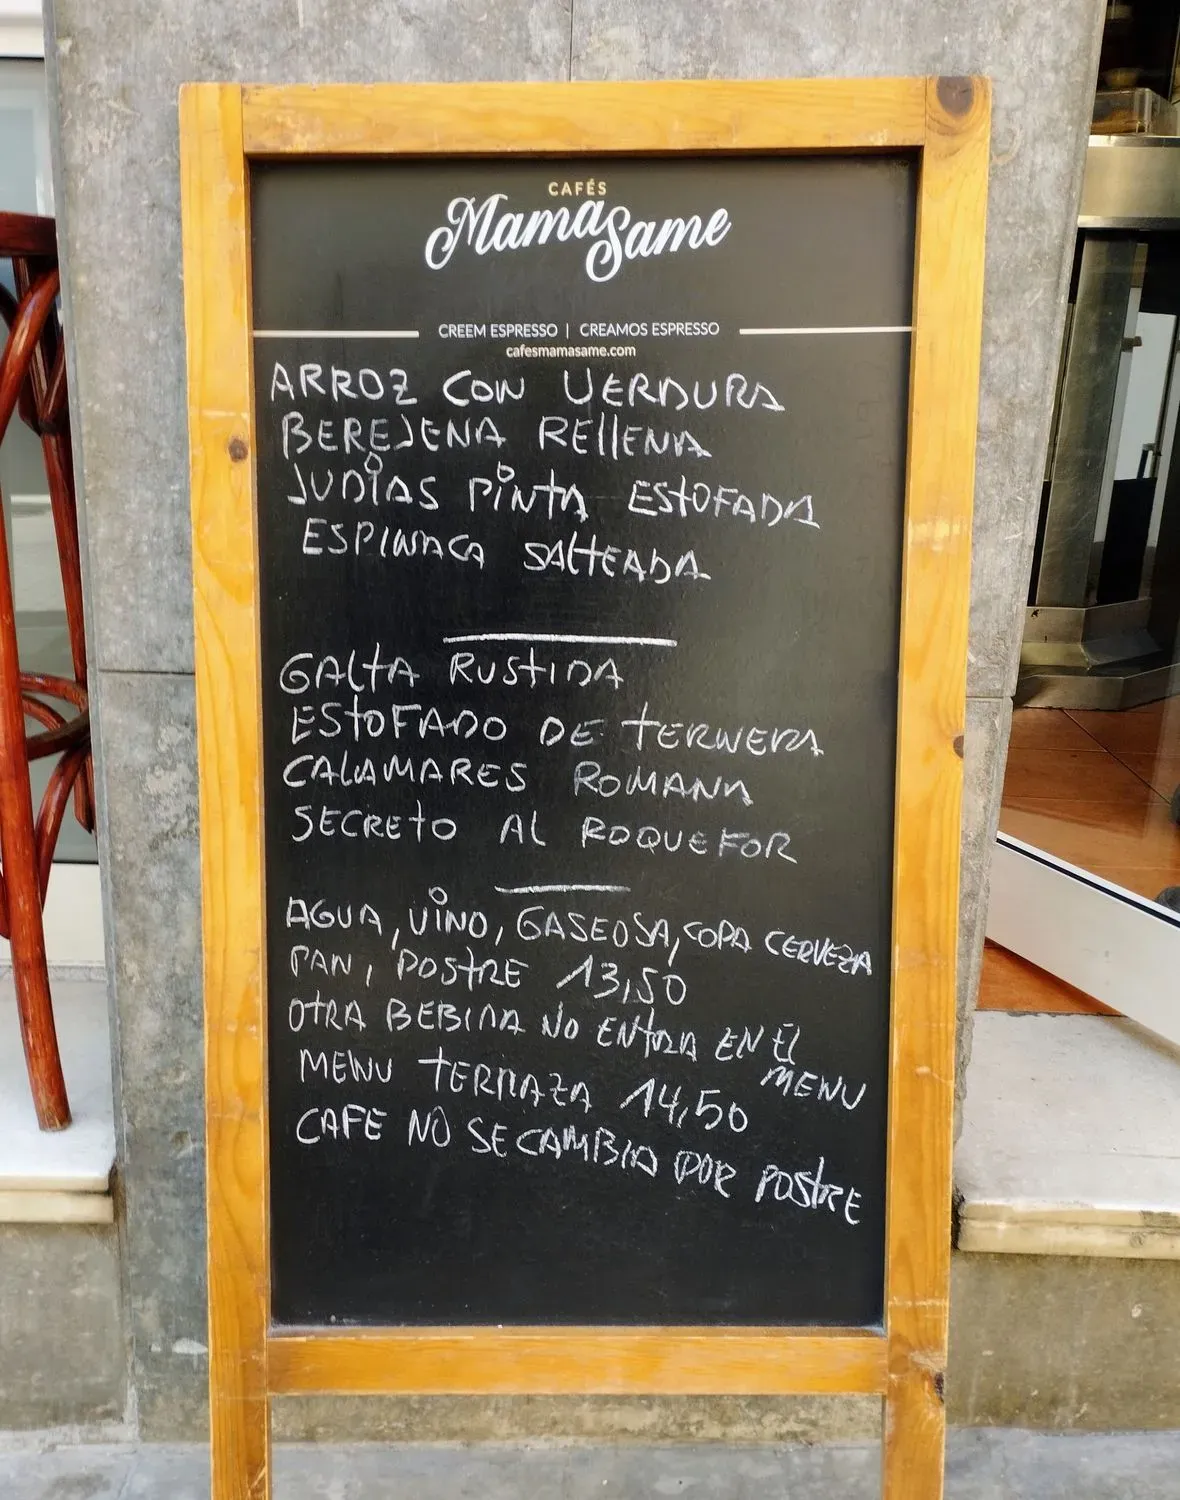 CAFÉS
MamaSame
CREEM ESPRESSO | CREAMOS ESPRESSO
cafesmamasame.com
ARROZ CON VERDURA
BEREJENA RELLENA
JUDIAS PINTA ESTOFADA
ESPINACA SALTEADA
GALTA RUSTIDA
ESTOFADO DE TERNERA
CALAMARES ROMANA
SECRETO AL ROQUEFOR
AGUA, VINO, GASEOSA, COPA CERVEZA
PAN, POSTRE 13,50
OTRA BEBIDA NO ENTRA EN El
MENU
MENU TERRAZA 14,50
CAFE NO SE CAMBIA POR POSTRE